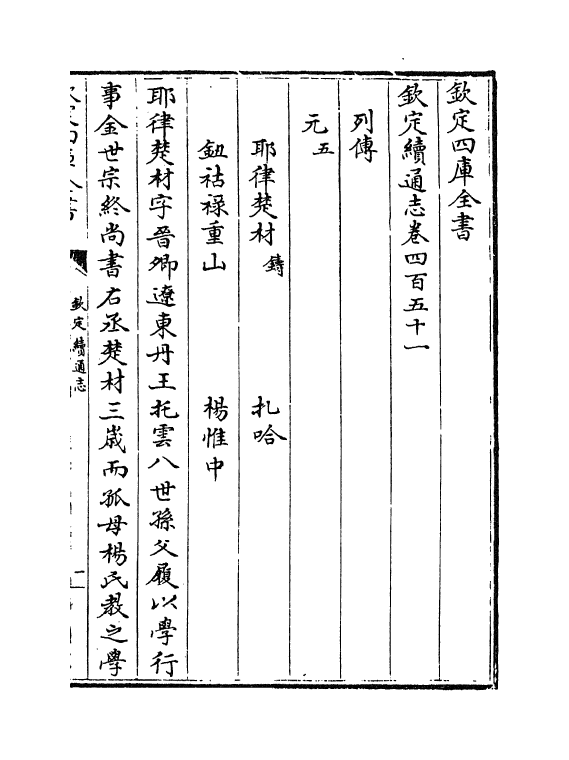 欽定四庫全書
欽定續通志卷四百五十一
列傳
元五
耶律楚材鑄 扎哈
鈕祜祿重山 楊惟中
耶律楚材字晉卿遼東丹王托雲八世孫父履以學行
事金世宗終尚書右丞楚材三歲而孤母楊氏教之學
欽定續通志
一